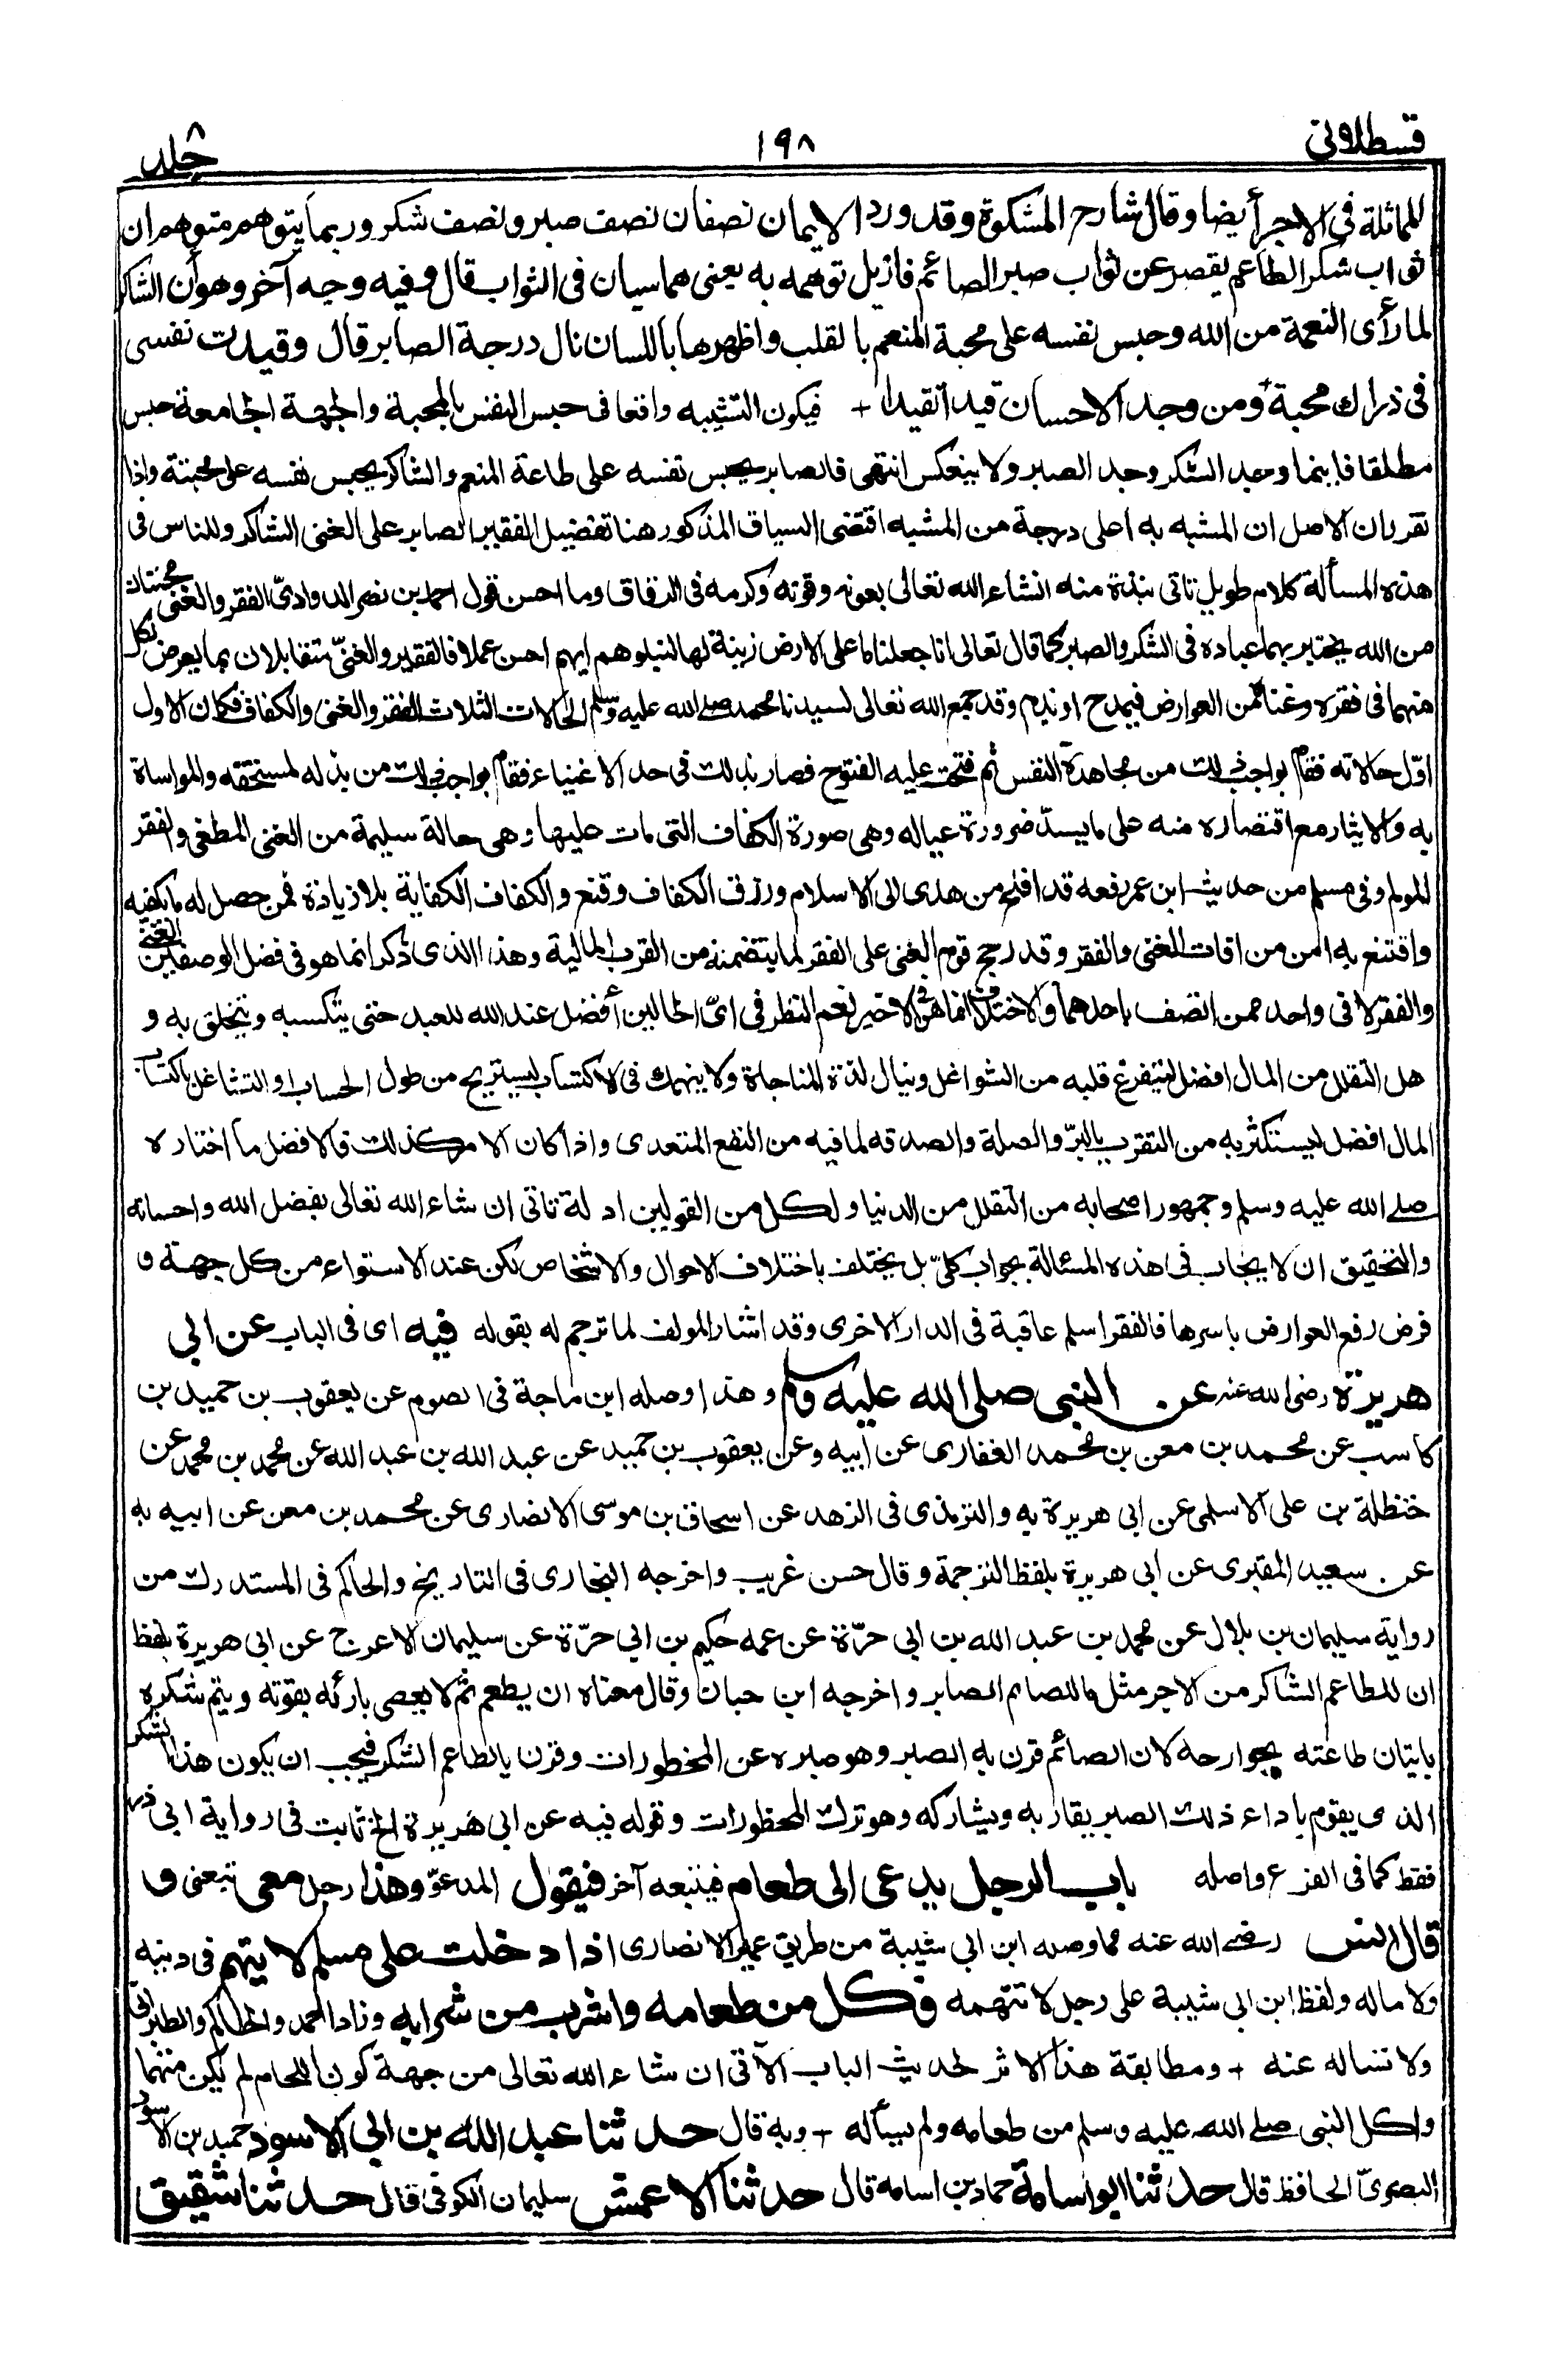 قسطلاني ١٩٨ جلد ٨
المماثلة في الاجر أيضا وقال شارح المشكوة وقد ورد الايمان نصفان نصف صبر ونصف شكر وربما يتوهم متوهم ان
ثواب شكر الطاعم يقصر عن ثواب صبر الصائم فازيل توهمه به يعني هما سيان في الثواب قال وفيه وجه آخر وهو أن الشاكر
لما رأى النعمة من الله وحبس نفسه على محبة المنعم بالقلب واظهرها باللسان نال درجة الصابر قال وقيدت نفسي
في ذراك محبة ومن وجد الاحسان قيدا تقيدا + فيكون التشبيه واقعا في حبس النفس بالمحبة والجهة الجامعة حبس
مطلقا فاينما وجد الشكر وجد الصبر ولا ينعكس انتهى فالصابر يحبس نفسه على طاعة المنعم والشاكر يحبس نفسه على محبته واذا
تقرر ان الاصل ان المشبه به اعلى درجة من المشبه اقتضى السياق المذكور هنا تفضيل الفقير الصابر على الغني الشاكر وللناس في
هذه المسألة كلام طويل تاتي نبذة منه انشاء الله تعالى بعونه وقوته وكرمه في الرقاق وما احسن قول احمد بن نصر الداودي الفقر والغنى محنتان
من الله يختبر بهما عباده في الشكر والصبر كما قال تعالى انا جعلنا ما على الارض زينة لها لنبلوهم ايهم احسن عملا فالفقير والغنيّ متقابلان بما يعرض لكل
منهما في فقره وغناه من العوارض فيمدح او يذم وقد جمع الله تعالى لسيدنا محمد صلى الله عليه وسلم الحالات الثلاث الفقر والغنى والكفاف فكان الاول
اوّل حالاته فقام بواجب ذلك من مجاهدة النفس ثم فتحت عليه الفتوح فصار بذلك في حد الاغنياء فقام بواجب ذلك من بذله لمستحقه والمواساة
به والايثار مع اقتصاره منه على ما يسدّ ضرورة عياله وهي صورة الكفاف التي مات عليها وهي حالة سليمة من الغنى المطغي والفقر
المولم وفي مسلم من حديث ابن عمر رفعه قد افلح من هدى الى الاسلام ورزق الكفاف وقنع والكفاف الكفاية بلا زيادة فمن حصل له ما يكفيه
واقتنع به امن من افات الغنى والفقر وقد رجح قوم الغني على الفقر لما يتضمنه من القرب المالية وهذا الذي ذكر انما هو في فضل الوصفين الغنى
والفقر لا في واحد ممن اتصف باحدهما والاختلاف انما هو في الاخير نعم النظر في ايّ الحالين أفضل عند الله للعبد حتى يتكسبه ويتخلق به و
هل التقلل من المال افضل ليتفرغ قلبه من الشواغل وينال لذة المناجاة ولا ينهمك في الاكتساب ليستريح من طول الحساب او التشاغل باكتساب
المال افضل ليستكثر به من التقرب بالبرّ والصلة والصدقه لما فيه من النفع المتعدي واذا كان الامر كذلك فالافضل ما اختاره
صلى الله عليه وسلم وجمهور اصحابه من التقلل من الدنيا ولكل من القولين ادلة تاتي ان شاء الله تعالى بفضل الله واحسانه
والتحقيق ان لا يجاب في هذه المسئالة بجواب كليّ بل يختلف باختلاف الاحوال والاشخاص لكن عند الاستواء من كل جهة و
فرض رفع العوارض باسرها فالفقر اسلم عاقبة في الدار الاخرى وقد اشار المولف لما ترجم له بقوله فيه اى في الباب عن ابي
هريرة رضي الله عنه عن النبي صلى الله عليه وسلم وهذا وصله ابن ماجة في الصوم عن يعقوب بن حميد بن
كاسب عن محمد بن معن بن محمد الغفاري عن ابيه وعن يعقوب بن حميد عن عبد الله بن عبد الله عن محمد بن محمد عن
حنظلة بن علي الاسلمي عن ابي هريرة به والترمذي في الزهد عن اسحاق بن موسى الانصاري عن محمد بن معن عن ابيه به
عن سعيد المقبري عن ابي هريرة بلفظ الترجمة وقال حسن غريب واخرجه البخاري في التاريخ والحاكم في المستدرك من
رواية سليمان بن بلال عن محمد بن عبد الله بن ابي حرّة عن عمه حكيم بن ابي حرّة عن سليمان الاعرج عن ابي هريرة بلفظ
ان للطاعم الشاكر من الاجر مثل ما للصائم الصابر واخرجه ابن حبان وقال معناه ان يطعم ثم لا يعصي بارئه بقوته ويتم شكره
باتيان طاعته بجوارحه لان الصائم قرن به الصبر وهو صبره عن المحظورات وقرن بالطاعم الشكر فيجب ان يكون هذا الشكر
الذي يقوم باداء ذلك الصبر يقاربه ويشاركه وهو ترك المحظورات وقوله فيه عن ابي هريرة الخ ثابت في رواية ابي ذر
فقط كما في الفرع واصله باب الرجل يدعى الى طعام فيتبعه آخر فيقول المدعوّ وهذا رجل معي تبعني و
قال انس رضي الله عنه مما وصله ابن ابي شيبة من طريق عمير الانصاري اذا دخلت على مسلم لا يتهم في دينه
ولا ماله ولفظ ابن ابي شيبة على رجل لا تتهمه فكل من طعامه واشرب من شرابه وزاد احمد والحاكم والطبراني
ولا تساله عنه + ومطابقة هذا الاثر لحديث الباب الآتي ان شاء الله تعالى من جهة كون اللحام لم يكن متهما
واكل النبي صلى الله عليه وسلم من طعامه ولم يسأله + وبه قال حدثنا عبد الله بن ابي الاسود حميد بن الاسود
البصريّ الحافظ قال حدثنا ابو اسامة حماد بن اسامه قال حدثنا الاعمش سليمان الكوفي قال حدثنا شقيق